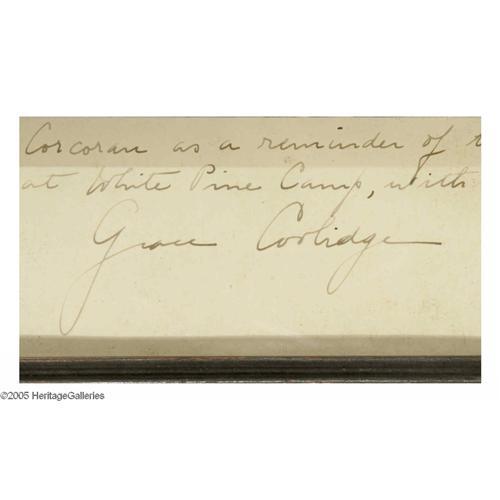 Corcoran as a reminder of
at White Pine Camp, with
Grace Coolidge
©2005 HeritageGalleries